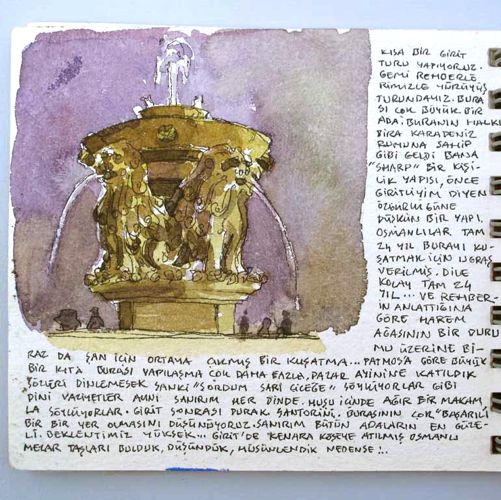 KISA BİR GİRİT
TURU YAPIYORUZ.
GEMİ REHBERLE
RİMİZLE YÜRÜYÜŞ
TURUNDAYIZ. BURA
SI ÇOK BÜYÜK BİR
ADA. BURANIN HALKI
BİRA KARADENİZ
RUMUNA SAHİP
GİBİ GELDİ BANA
"SHARP" BİR KİŞİ-
LİK YAPISI, ÖNCE
GİRİTLİYİM DİYEN
ÖZGÜRLÜĞÜNE
DÜŞKÜN BİR YAPI.
OSMANLILAR TAM
24 YIL BURAYI KU-
ŞATMAK İÇİN UĞRAŞ
VERİLMİŞ. DİLE
KOLAY TAM 24
YIL... VE REHBER-
İN ANLATTIĞINA
GÖRE HAREM
AĞASININ BİR DURU
MU ÜZERİNE Bİ-
RAZ DA ŞAN İÇİN ORTAYA ÇIKMIŞ BİR KUŞATMA... PATMOS'A GÖRE BÜYÜK
BİR KITA BURASI YAPILAŞMA ÇOK DAHA FAZLA, PAZAR AYİNİNE KATILDIK
SÖZLERİ DİNLEMESEK SANKİ "SORDUM SARI ÇİÇEĞE" SÖYLÜYORLAR GİBİ
DİNİ VAZİYETLER AYNI SANIRIM HER DİNDE. HUŞU İÇİNDE AĞIR BİR MAKAM-
LA SÖYLÜYORLAR. GİRİT SONRASI DURAK SANTORİNİ. BURASININ ÇOK "BAŞARILI"
BİR BİR YER OLMASINI DÜŞÜNÜYORUZ. SANIRIM BÜTÜN ADALARIN EN GÜZE-
Lİ. BEKLENTİMİZ YÜKSEK... GİRİT'DE KENARA KÖŞEYE ATILMIŞ OSMANLI
MEZAR TAŞLARI BULDUK, DÜŞÜNDÜK, HÜSÜNLENDİK NEDENSE!..